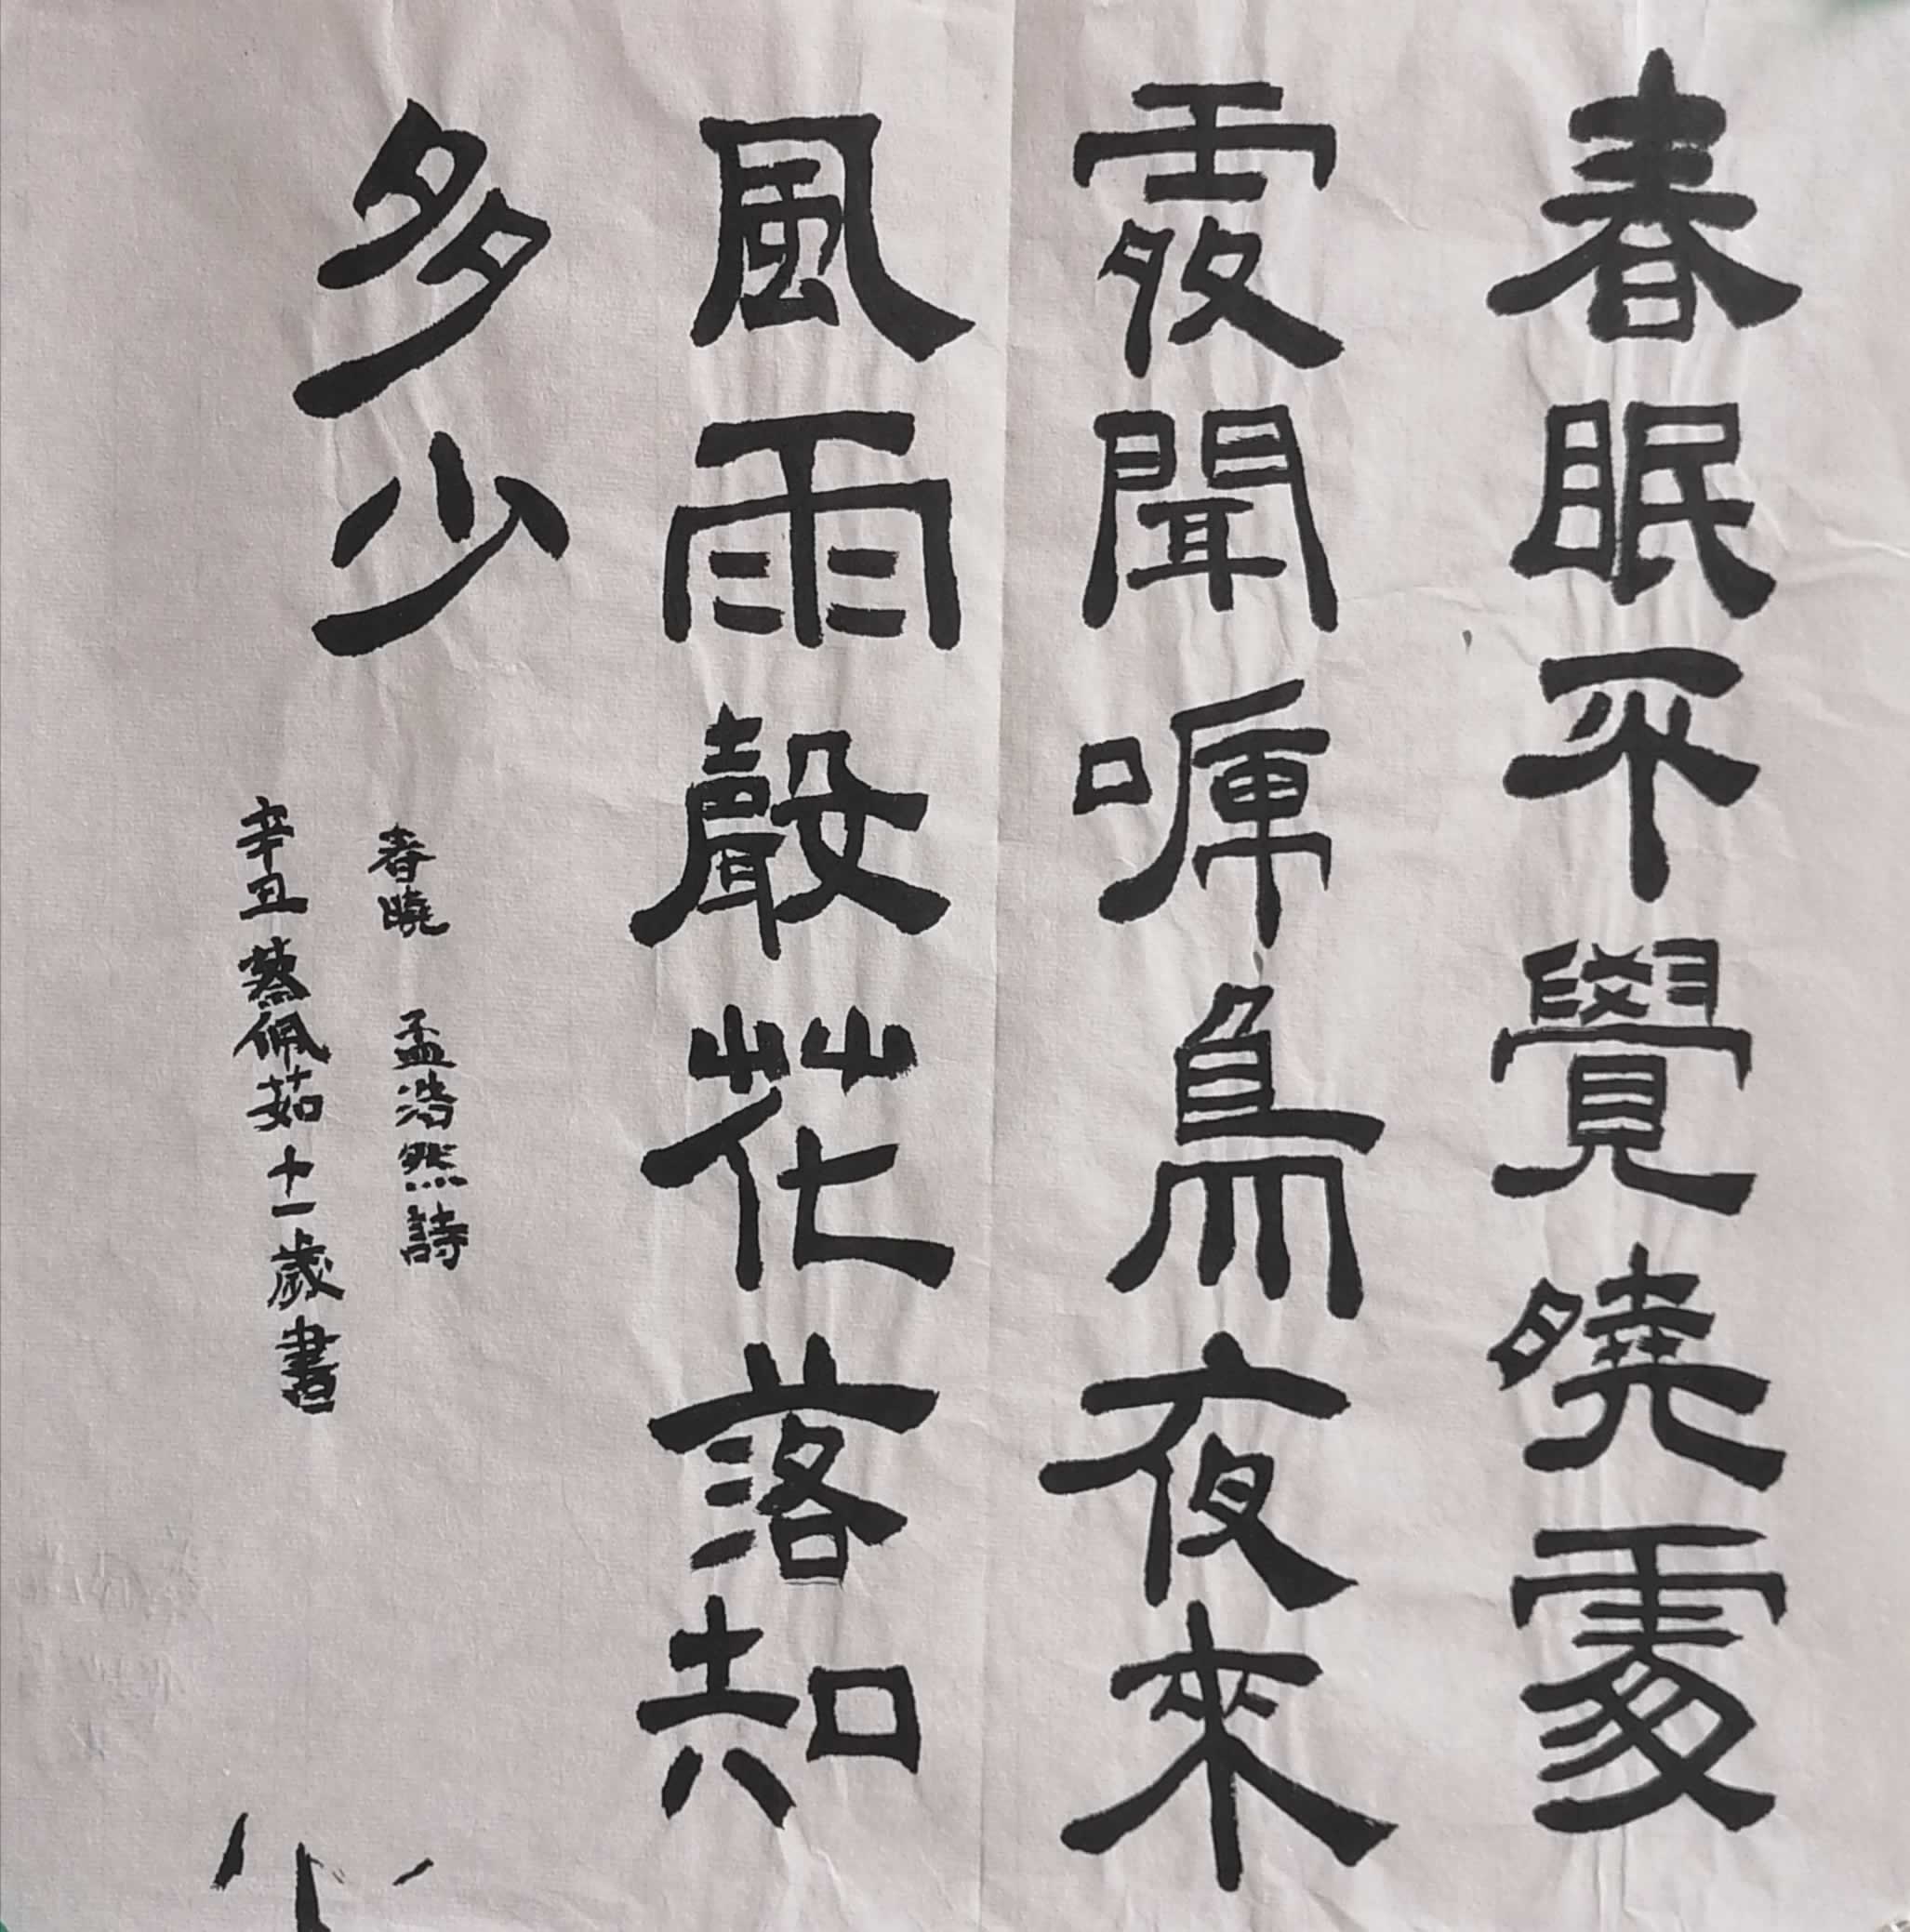 春眠不覺曉處
處聞嗁鳥夜來
風雨聲花落知
多少
春曉 孟浩然詩
辛丑蔡佩茹十一歲書